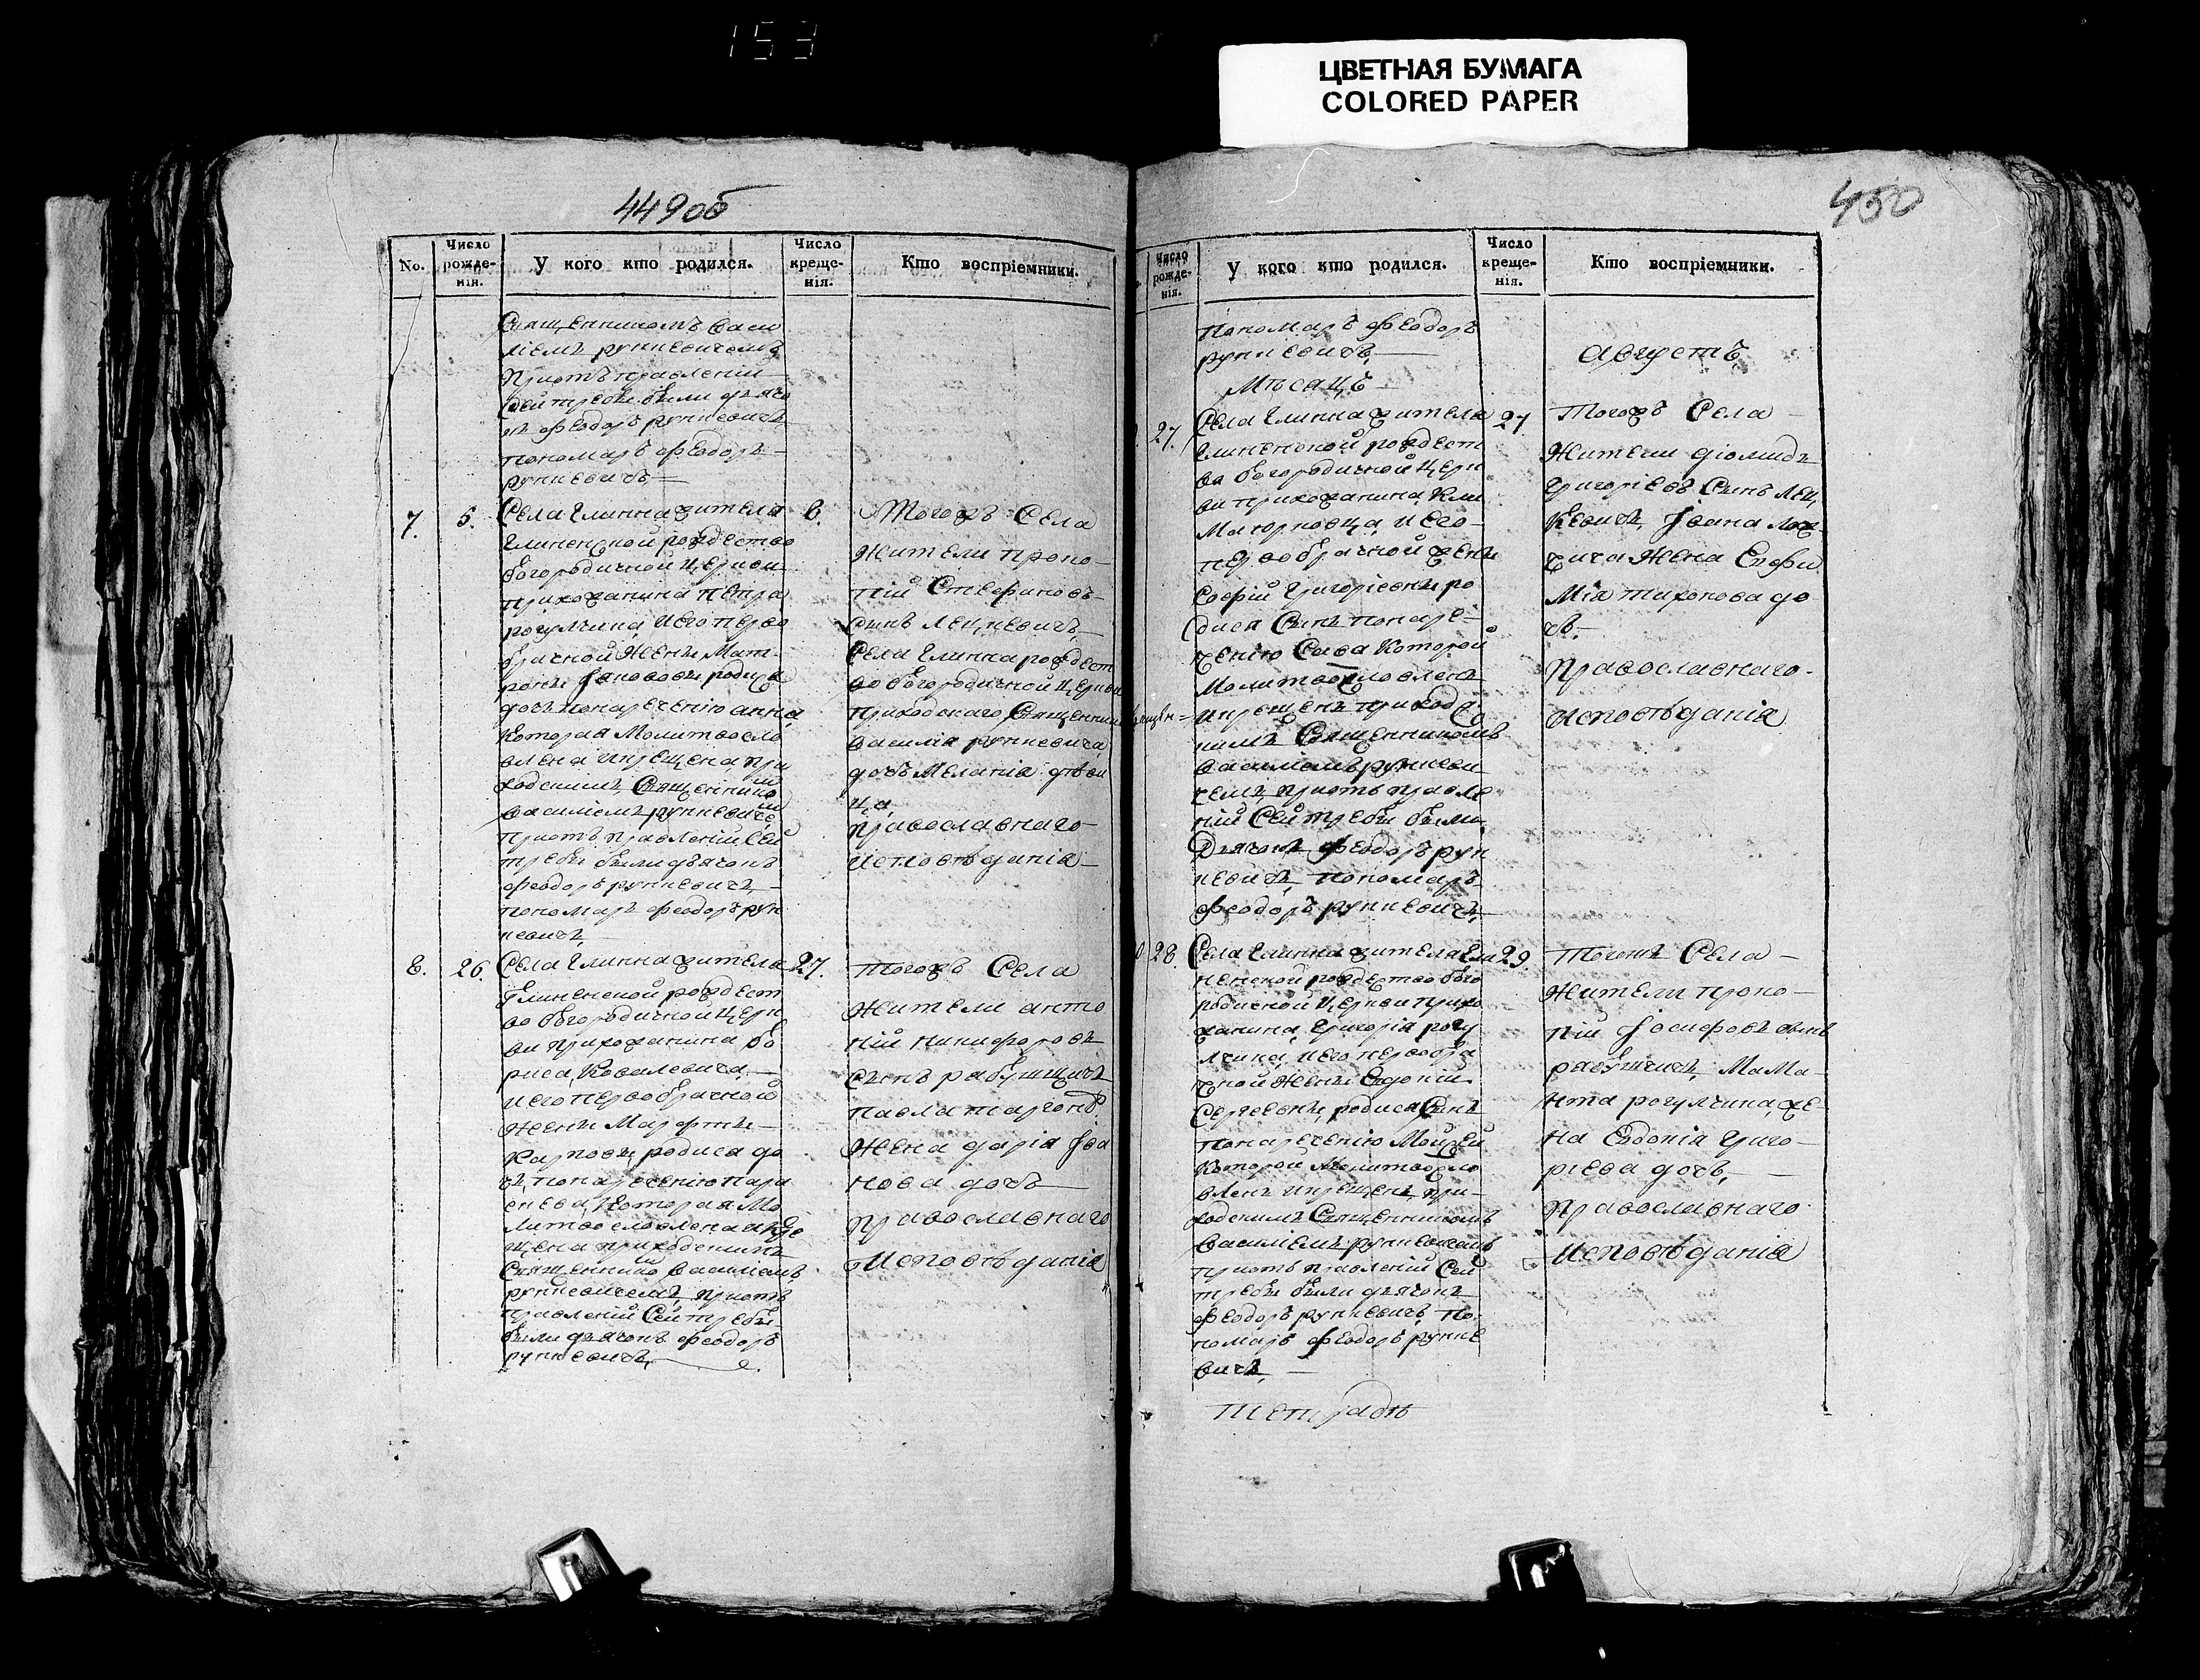 153
ЦВЕТНАЯ БУМАГА
COLORED PAPER
449об
450
No.
Число рожденія.
У кого кто родился.
Число крещенія.
Кто воспріемники.
Священникомъ Васи
ліемъ рункевичемъ
приотъправленіи
сей требы были дьячо
къ феодоръ рункевичъ
пономаръ феодоръ
рункевичъ
7.
5.
Села Глинна жителя
глиненской рождество
богородичной церкви
прихожанина петра
рогулчина, иего перво
брачной жены Мат
роны Іановавы родися
дочъ понареченію анна
которая Молитвосло
влена икрещена, при
ходскимъ Священнико
василіемъ рункевиче
приотъправленій Сей
требы были дьячокъ
феодоръ рункевичъ
пономаръ феодоръ рун
кевичъ
6.
Тогожъ Села
Жители проко
пій Стефановъ
сынъ лецкевичъ
Села Глинна рождест
во богородичной церкви
приходскаго Священник
василія рункевича
дочъ Меланія дѣви
ца
православнаго
исповѣданія
8.
26.
Села Глинна жителя
Глиненской рождест
во богородичной церк
ви прихожанина бо
риса, Ковалевича,
иего первобрачной
жены Марфты
Карповы, родися до
чъ, понареченію пара
скева, которая Мо
литвословлена икре
щена приходскимъ
Священнико василіемъ
рункевичемъ, приотъ
правленій Сей требы
были дьячокъ феодоръ
рункевичъ,
27.
тогожъ Села
Жители анто
ній никифоровъ
сынъ рабущицъ
павла
жена дарія Іва
нова дочъ
православнаго
Исповѣданія
Число рожденія.
У кого кто родился.
Число крещенія.
Кто воспріемники.
пономаръ феодоръ
рункевичъ
Мѣсацъ
августъ
27.
Села Глинна жителя
глиненской рождест
ва богородичной церк
ви прихожанина, кли
иего
первобрачной жены
Софій Григоріевны ро
дися Сынъ понаре
ченію Сава Которой
Молитвословленъ
икрещенъ приходс
кимъ Священникомъ
василіемъ рункеви
чемъ, приотъправле
ній Сей требы были,
Дьячокъ феодоръ рун
кевичъ, пономаръ
феодоръ рункевичъ,
27
Тогожъ Села
Жители діомидъ
Григоріевъ Сынъ лец
кевичъ, Іоана
жена Евфи
Мія тихонова до
чъ.
Православнаго.
исповѣданія
28.
Села Глинна жителя Гли
ненской рождество бого
родичной церкви прихо
жанина, Григорія рогу
лчина, иего первобра
чной жены Евдокій
Сергеевны, родися Сынъ
понареченію Мойсей
Которой Молитвосло
вленъ икрещенъ, при
ходскимъ Священникомъ
василіемъ рункевичемъ
приотъправленій Сей
требы были дьячокъ
феодоръ рункевичъ, по
номаръ феодоръ рунке
вичъ,
29.
Тогожъ Села
Жители проко
пій Іосифовъ сынъ
рабущичъ, МаМа
нта рогулчина, же
на Евдокія Григо
ріева дочъ,
православнаго
Исповѣданія